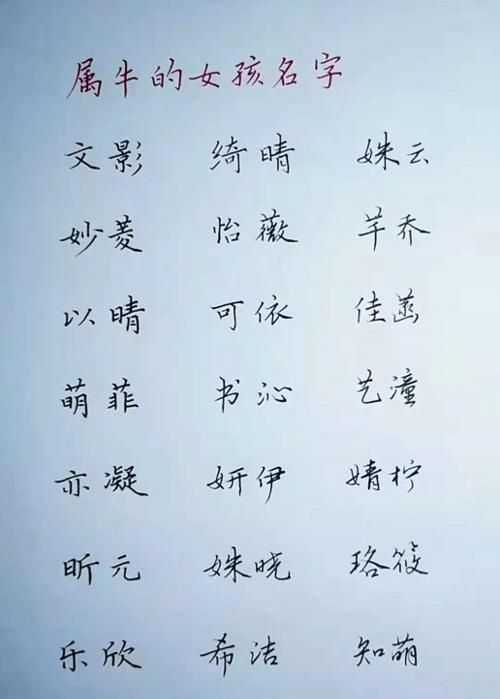 属牛的女孩名字
文影 绮晴 姝云
妙菱 怡薇 芊乔
以晴 可依 佳菡
萌菲 书沁 艺潼
亦凝 妍伊 婧柠
昕元 姝晓 珞筱
乐欣 希洁 知萌